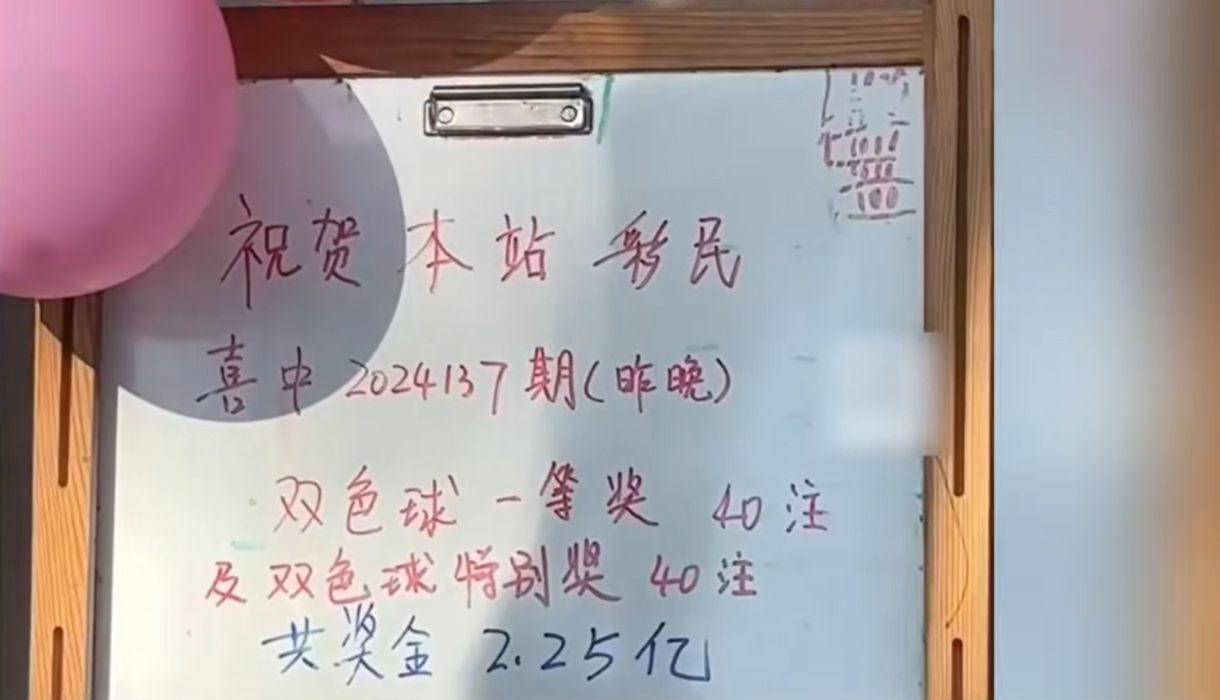 祝贺本站彩民
喜中2024137期(昨晚)
双色球一等奖 40注
及双色球特别奖 40注
共奖金 2.25亿